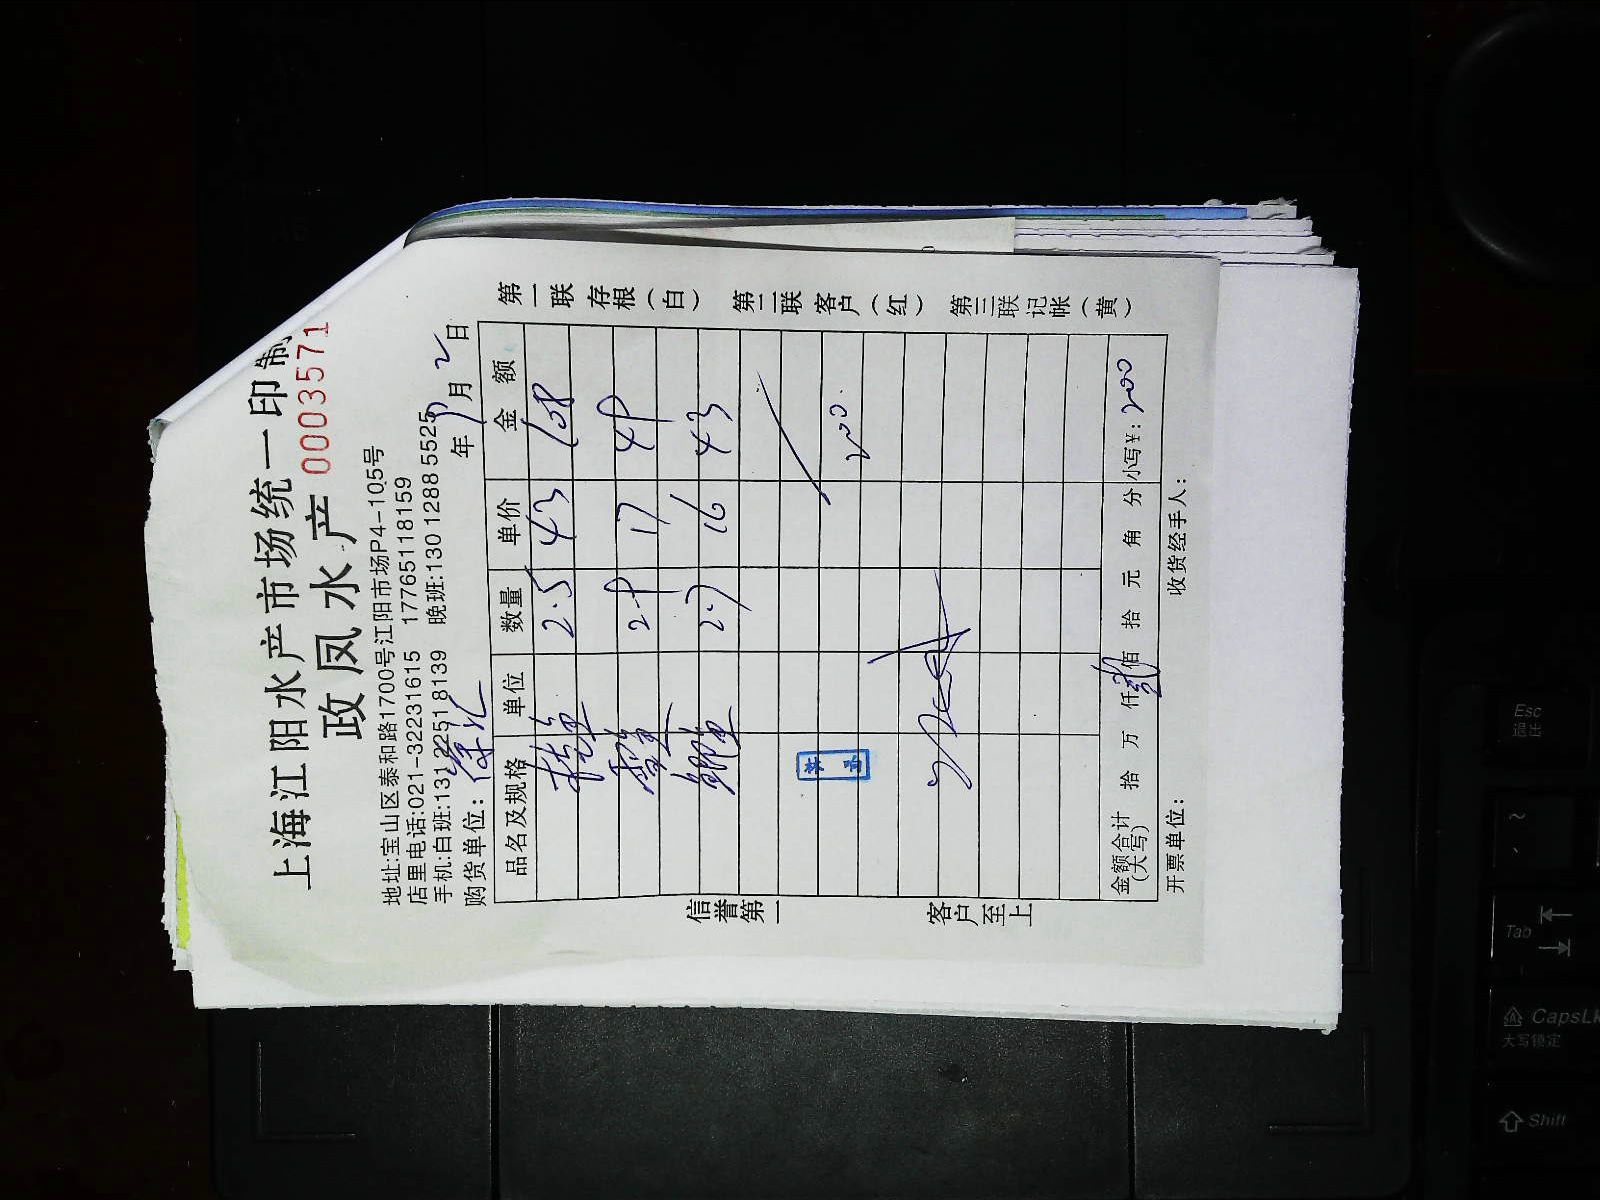 上海江阳水产市场统一印制
政凤水产 0003571
地址:宝山区泰和路1700号江阳市场P4-105号
店里电话:021-32231615 17765118159
手机:白班:13122518139 晚班:13012885525
购货单位: 年 9月2日
品名及规格 单位 数量 单价 金额
桂鱼 2.5 43 108
鲈鱼 2.9 17 49
鲫鱼 2.7 16 43
200.
金额合计(大写) 拾 万 仟 贰佰 拾 元 角 分 小写¥: 200
开票单位: 收货经手人:
信誉第一
客户至上
第一联存根(白) 第二联客户(红) 第三联记帐(黄)
Esc
退出
Tab
CapsLk
大写锁定
Shift